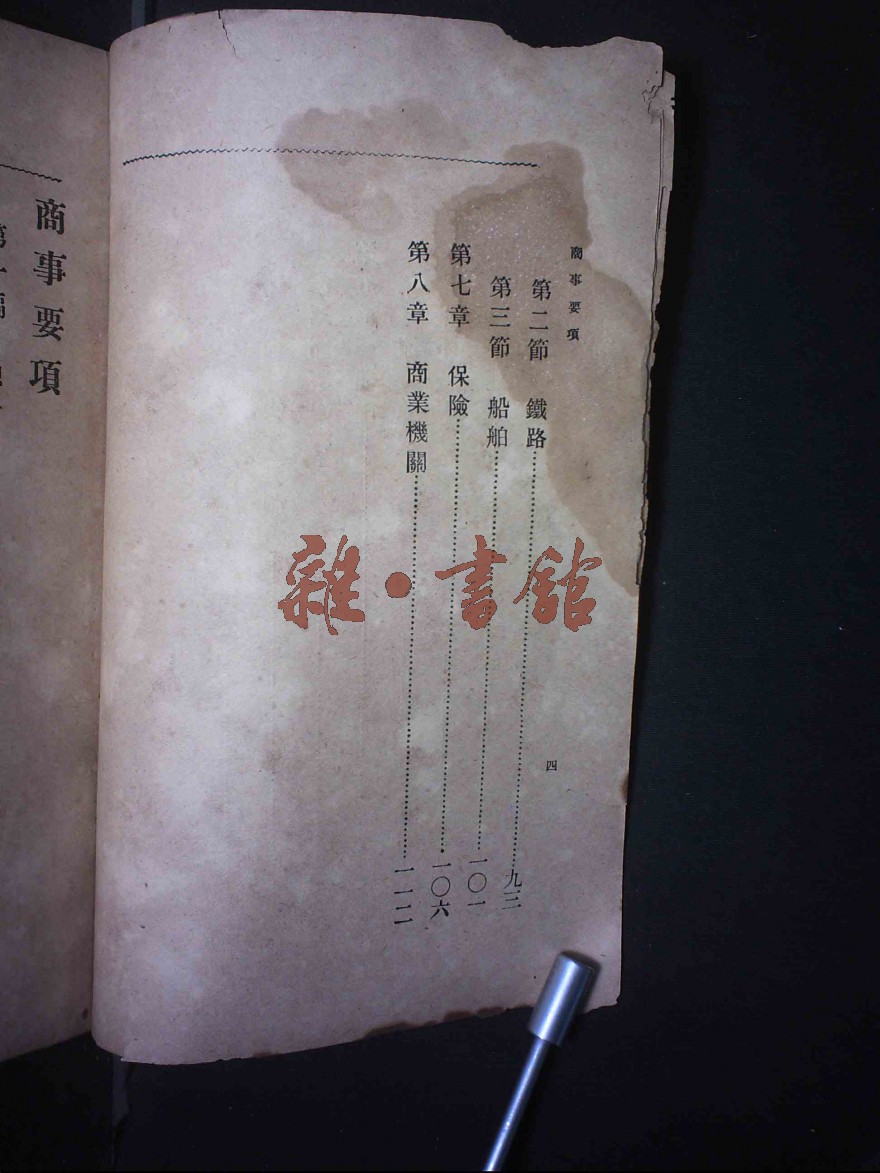 商事要項
第二節　鐵路……九三
第三節　船舶……一〇一
第七章　保險……一〇六
第八章　商業機關……一一二
四
雜·書館
商事要項